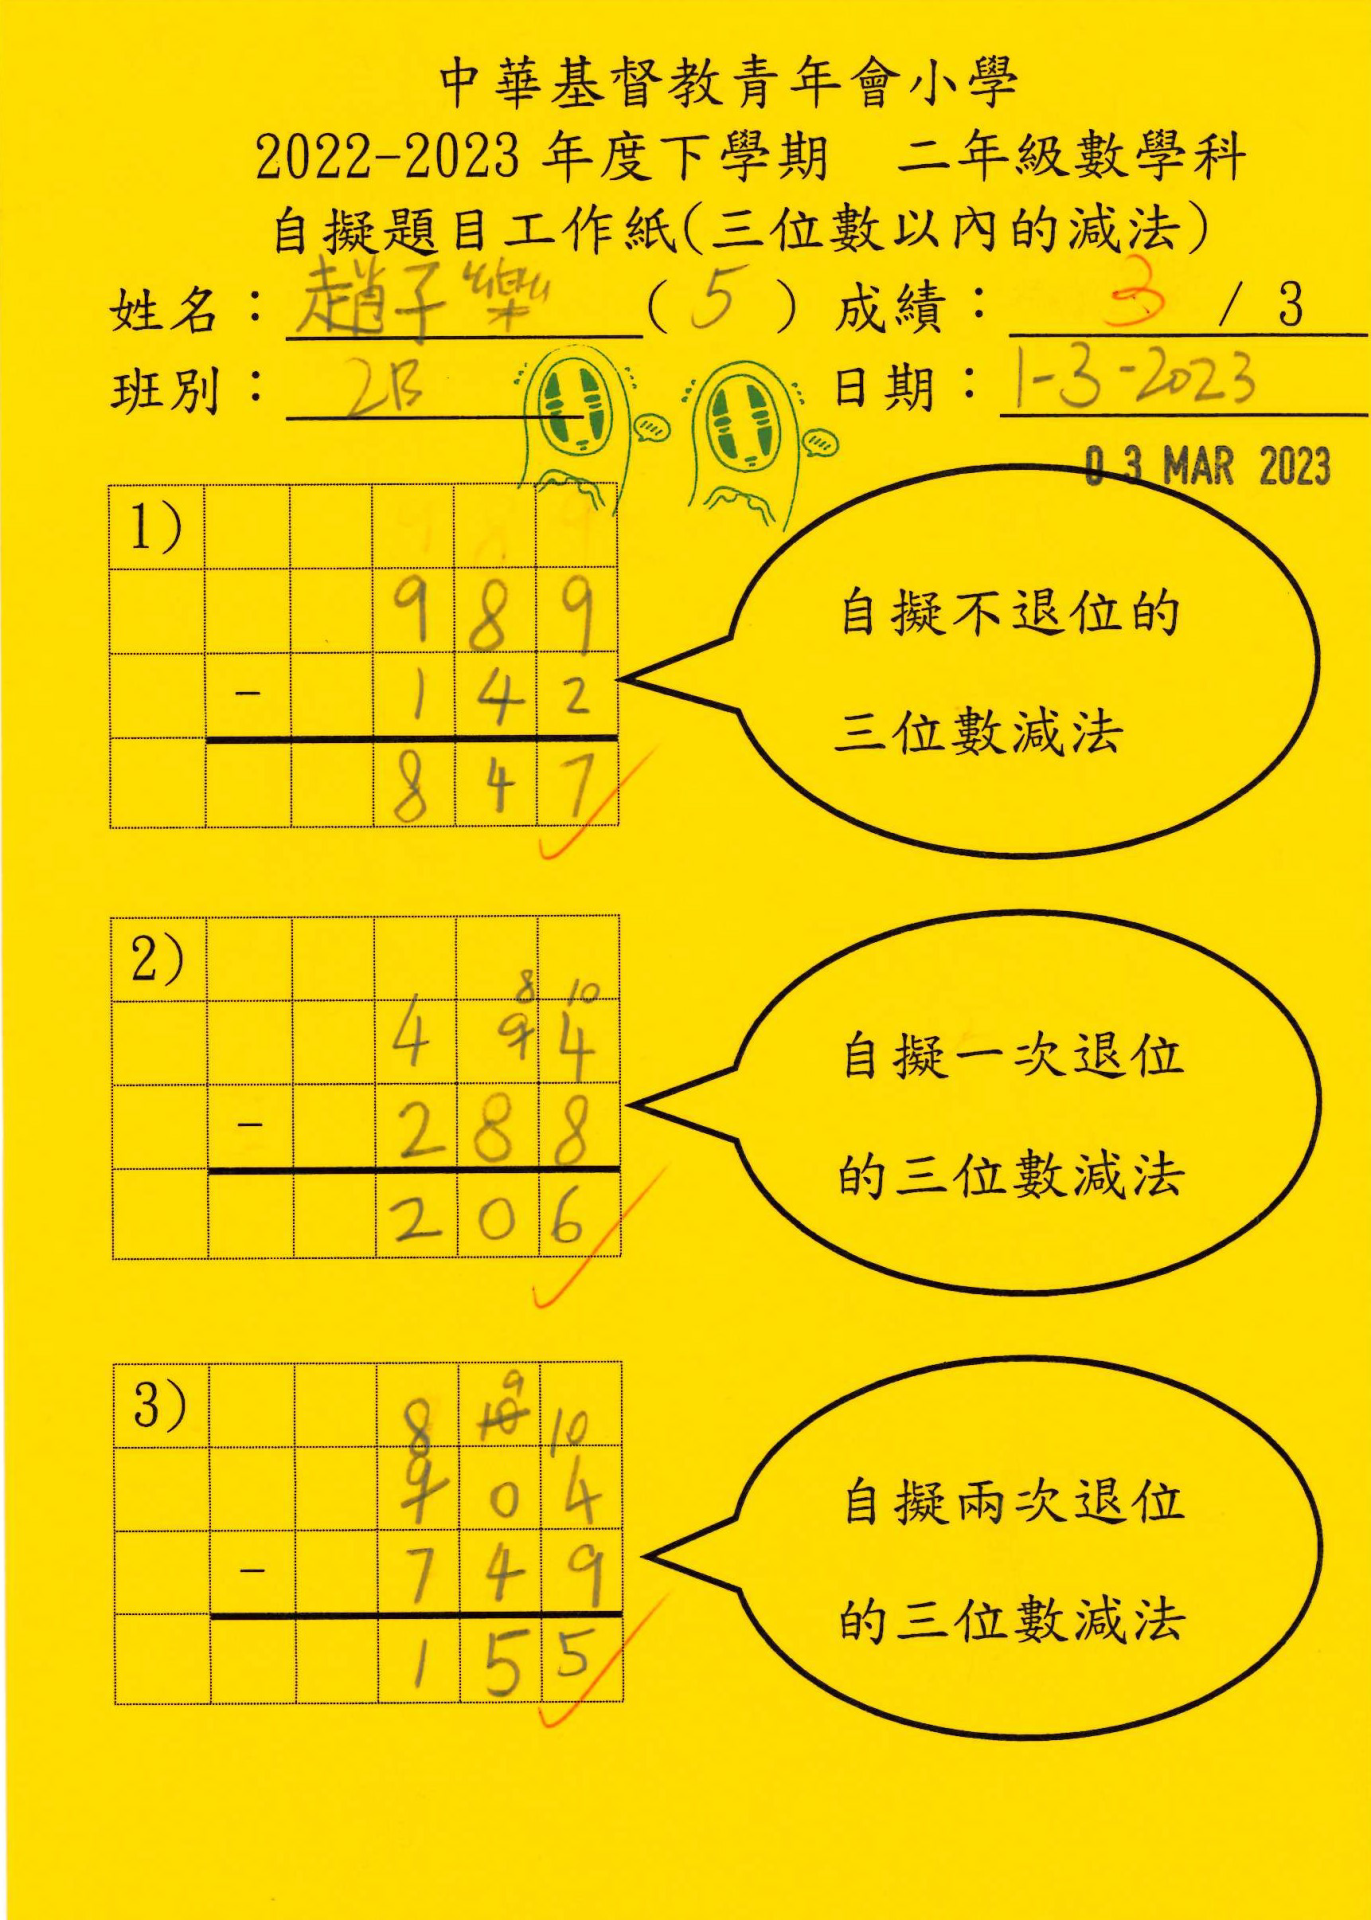 中華基督教青年會小學
2022-2023 年度下學期　二年級數學科
自擬題目工作紙(三位數以內的減法)
姓名：趙子樂 (5) 成績：3 / 3
班別：2B 日期：1-3-2023
03 MAR 2023
1)
9 8 9
- 1 4 2
8 4 7
自擬不退位的
三位數減法
2)
8 10
4 9 4
- 2 8 8
2 0 6
自擬一次退位
的三位數減法
3)
9
8 10 10
9 0 4
- 7 4 9
1 5 5
自擬兩次退位
的三位數減法